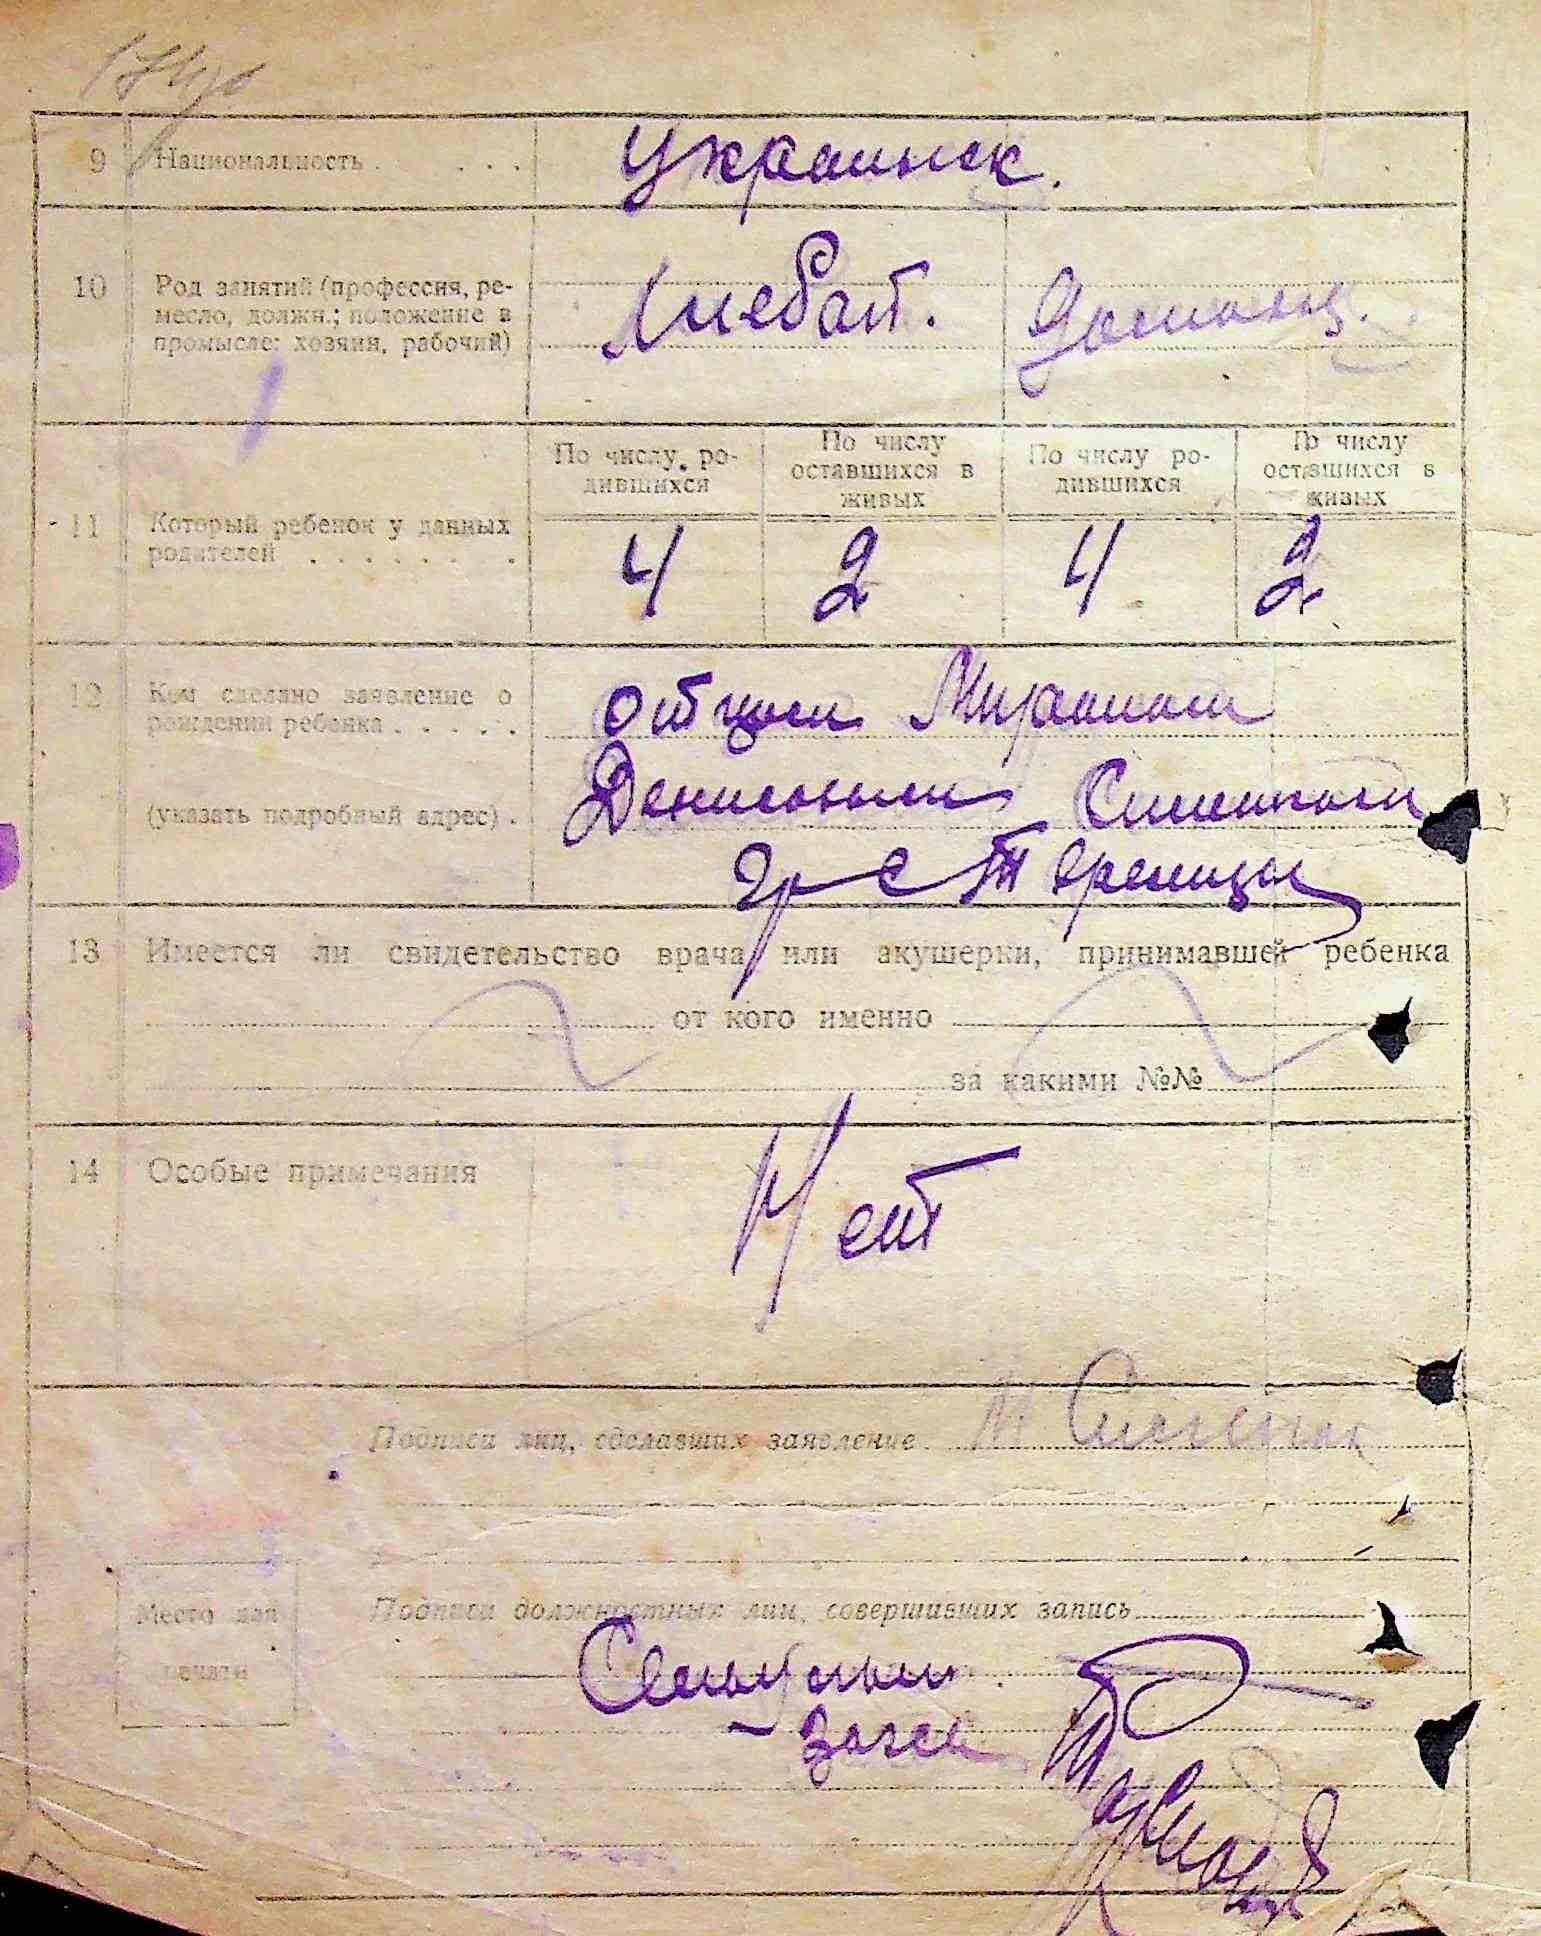 9 Национальность . . . . Украинск.
10 Род занятий (профессия, ре-
месло, должн.; положение в
промысле: хозяин, рабочий)
Хлебоп. Домохоз.
По числу ро-
дившихся
По числу
оставшихся в
живых
По числу ро-
дившихся
По числу
оставшихся в
живых
11 Который ребенок у данных
родителей . . . . . . .
4 2 4 2
12 Кем сделано заявление о
рождении ребенка . . . . .
отцом Мироном
(указать подробный адрес) .
Денисовым
гр с
13 Имеется ли свидетельство врача или акушерки, принимавшей ребенка
от кого именно
за какими №№
14 Особые примечания
Нет
Подписи лиц, сделавших заявление М
Место для
печати
Подписи должностных лиц, совершивших запись